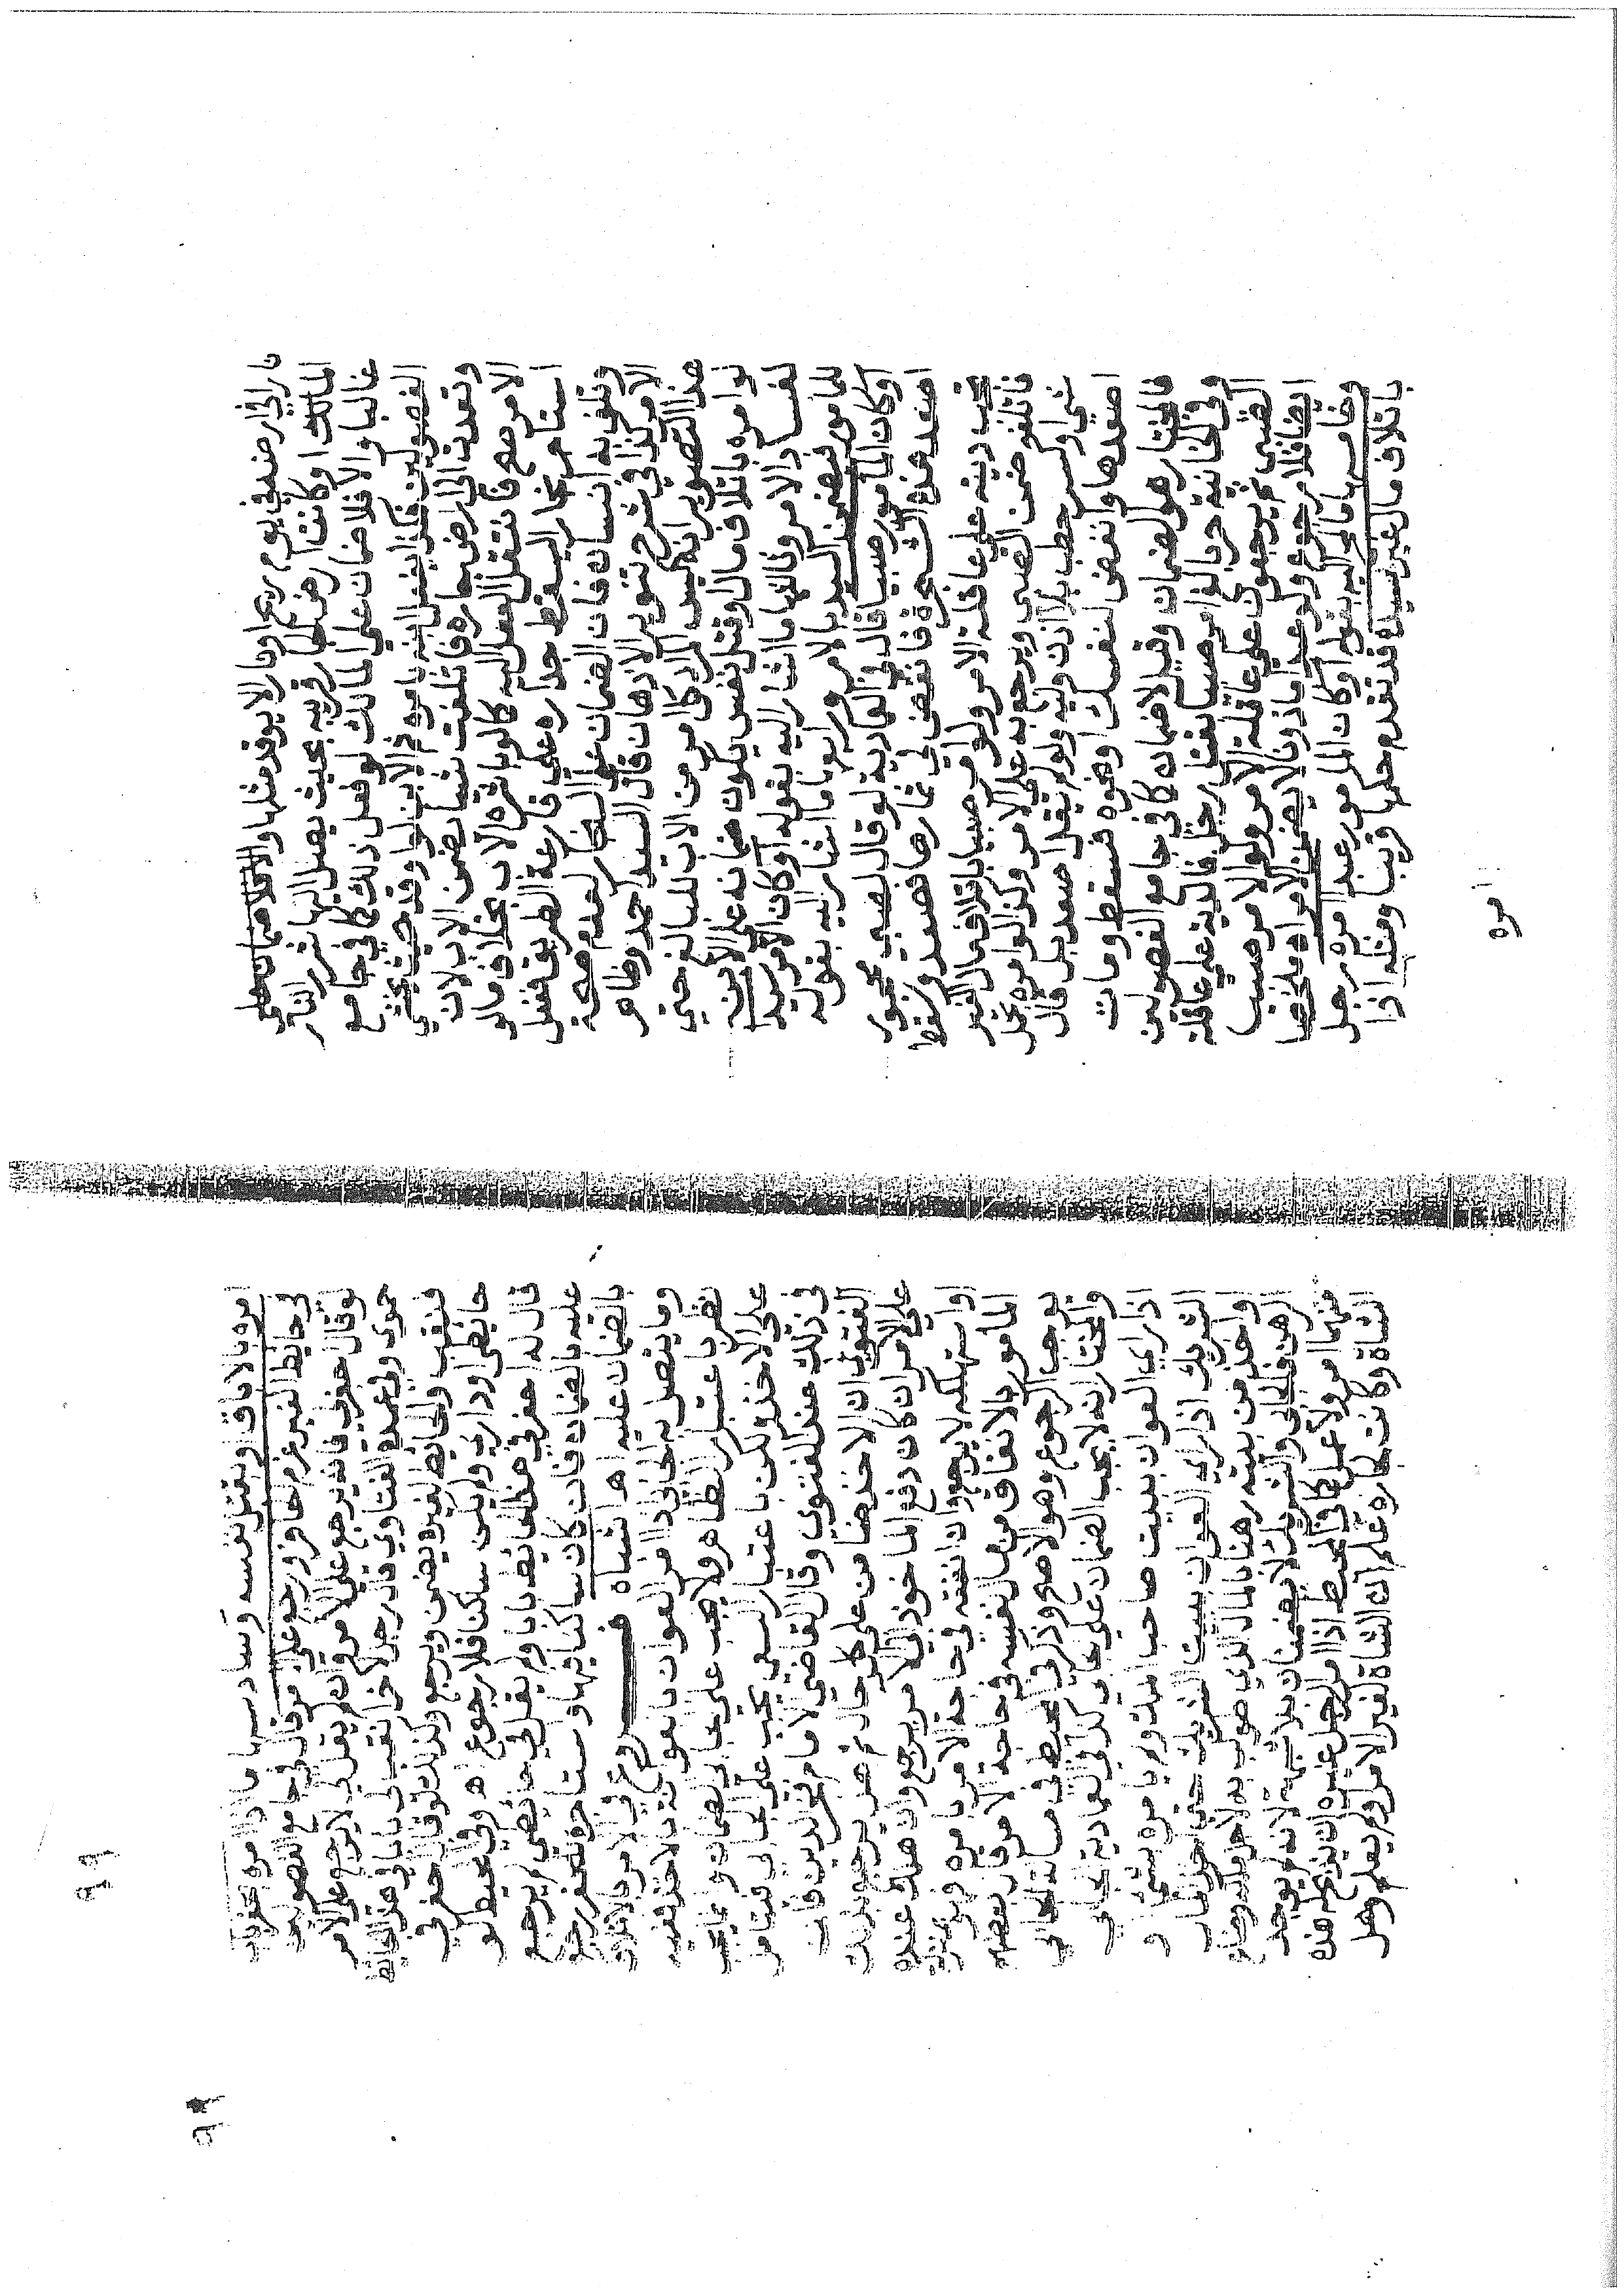 نارا في ارضه في يوم ريح او نارا لا يوقد مثلها والا فلا ضمان على
المالك او كانت ارض الجار قريبة بحيث يصل اليها شرر النار
غالبا والا فلا ضمان علي المالك لو فعل ذلك كما في جامع
الفصولين فكذا يفعل ابنه بامره ثم الابن لو اوقد حيث يخشي
وتعدت الى ارض جاره فاتلفت شيئا يضمن الاب لان
الامر صح فانتقل الفعل اليه كالو باشره الاب بخلاف مالو
استاجر نجارا ليسقط جداره على قارعة الطريق ففعل
وتلف به انسان فان الضمان علي النجار لعدم صحة
الامر كذا في شرح تنوير الاذهان قال السيد احمد وظاهر
هذا التصوير انه ليس المراد كل امر من الاب للبالغ حتي
لو امره باتلاف مال او قتل نفس يكون ضمانه على الابن
لفساد الامر وثالثها ما اشار اليه بقوله او كان الامر سيدا
للمامور فيضمن السيد بالامر ورابعها ما اشار اليه بقوله
او كان المامور صبيا قال في العمادية لو قال لصبي محجور
اصعد هذه الشجرة فانفض لي ثمارها فصعد وسقط
تجب ديته على عاقلة الامر ولو امر صبيا باتلاف مال الغير
فاتلفه ضمن الصبي ويرجع به على الامر وكذا لو امره بحمل
شي او كسر حطب بلا اذن وليه ولو لم يقل اصعد بل قال
اصعدها وانفض لنفسك او نحوه فسقط ومات
فالمختار هو الضمان وقيل لا ضمان كما في جامع الفصولين
وفي الخانية حر بالغ امر صبيا بقتل رجل فالدية على عاقلة
الصبي ثم يرجعون على عاقلة الامر ولو الامر صبيا
ايضا فلا رجوع ولو عبدا ماذونا لا يضمن الامر اه ملخصا
وخامسها ما اشار اليه بقوله او كان المامور عبدا امره رجل
باتلاف مال غير سيده قد تقدم حكمها قريبا ومثله اذا
امره
٩٩
امره بالاباق او بقتل نفسه وسادسها ما اذا امره بحفر باب
في حايط الغير غرم الحافر ورجع على الامر قال في جامع الفصولين
لو قال احفر لي فانه يرجع على الامر وان لم يقل لي لا يرجع على الامر
حموي وفي عمدة الفتاوي قال رجل لاخر انقب لي بابا في هذا الحايط
فنقب والحايط لغيره يضمن ويرجع وكذلك لو قال احفر في
حايطي او داري ولم يكن ساكنا فلا رجوع اه وفي المحيط لو
قال له احفر في هذا الحايط بابا ولم يقل في حايطي لم يرجع
عليه بالضمان فان كان ساكنا بها او استاجره للحفر رجع
بالضمان عليه اه اشباه فروع في الامر بالاتلاف
وما يتصل به الجاني اذا امر العوان بالاخذ ففيه
نظر باعتبار الظاهر لا يجب علي الجاني الضمان وانما يجب
على الاخذ ولكن باعتبار السعي يجب علي الجاني فيتامل
في ذلك عند الفتوي وقال القاضي الامام فخر الدين قاضيخان
الفتوي ان الاخذ ضامن على كل حال ثم هل يرجع بذلك
علي الامر ان كان دفع الماخوذ الي الامر يرجع وان هلك عنده
او استهلكه لا يرجع وان انفقه في حاجة الامر بامره فهو بمنزلة
المامور بالانفاق من مال نفسه في حاجة الامر قال بعضهم
يوجب الرجوع وهو الاصح وذكر في المحيط في مسالة الجاني
والمختار انه لا يجب الضمان علي الجاني كذا في العمادية الجاني
اذا راي العوان بيت صاحب الملك ولم يامره بشي او
الشريك اذا راي العوان بيت الشريك حتي اخذ المال
او اخذ من بيته رهنا بالمال الذي طولب به لاجل ملكه وضاع
الرهن فالجاني والشريك لا يضمنان بلا شبهة لانه لم يوجد
منهما امر ولا حمل كما في المحيط اذا امر الرجل غيره ان يذبح هذه
الشاة وكانت لجاره علم ان الشاة لغير الامر او لم يعلم وهل
٩٩